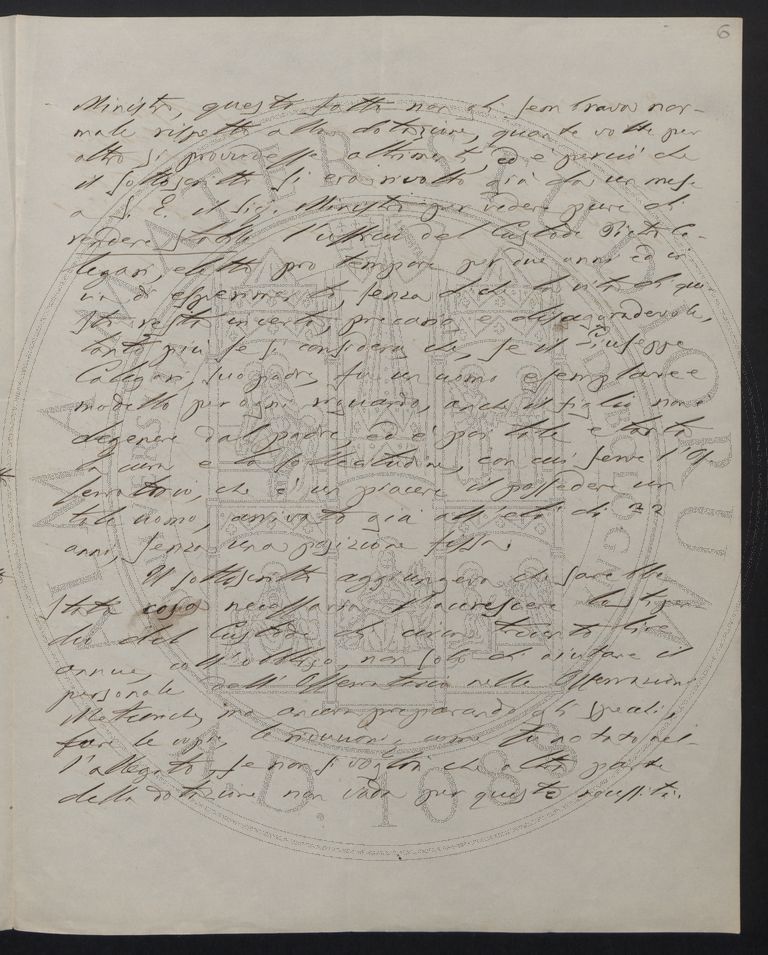 6
Ministro, questo fatto non gli sembrava nor-
male rispetto alla dotazione, quante volte per
altro si provvedesse altrimenti, ed è perciò che
il sottoscritto si era rivolto già da un mese
a S. E. il Sig. Ministro per vedere pure di
rendere stabile l'ufficio del Custode Pietro Ca-
legari, eletto pro tempore per due anni ed in
via di esperimento, senza di che la vita di que-
sto resta incerta, precaria e disaggradevole,
tanto più se si considera che, se il Giuseppe
Calegari, suo padre, fu un uomo esemplare e
modello per ogni riguardo, anche il figlio non è
degenere dal padre, ed è poi tale e tanta
la cura e la sollecitudine, con cui serve l'Os-
servatorio, che è un piacere il possedere un
tale uomo, arrivato già all'età di
anni, senza una posizione fissa.
Il sottoscritto aggiungeva che sarebbe
stata cosa necessaria l'accrescere lo stipen-
dio del Custode di circa trecento lire
annue, coll'obbligo, non solo di aiutare il
personale dell'Osservatorio nelle Osservazioni
Meteoriche, ma ancora preparando gli specchi,
fare le copie, le riduzioni, come fu notato nel-
l'allegato, se non si voglia che altra parte
della dotazione non vada per queste necessità.
ALMA MATER STUDIORUM
A.D. 1088